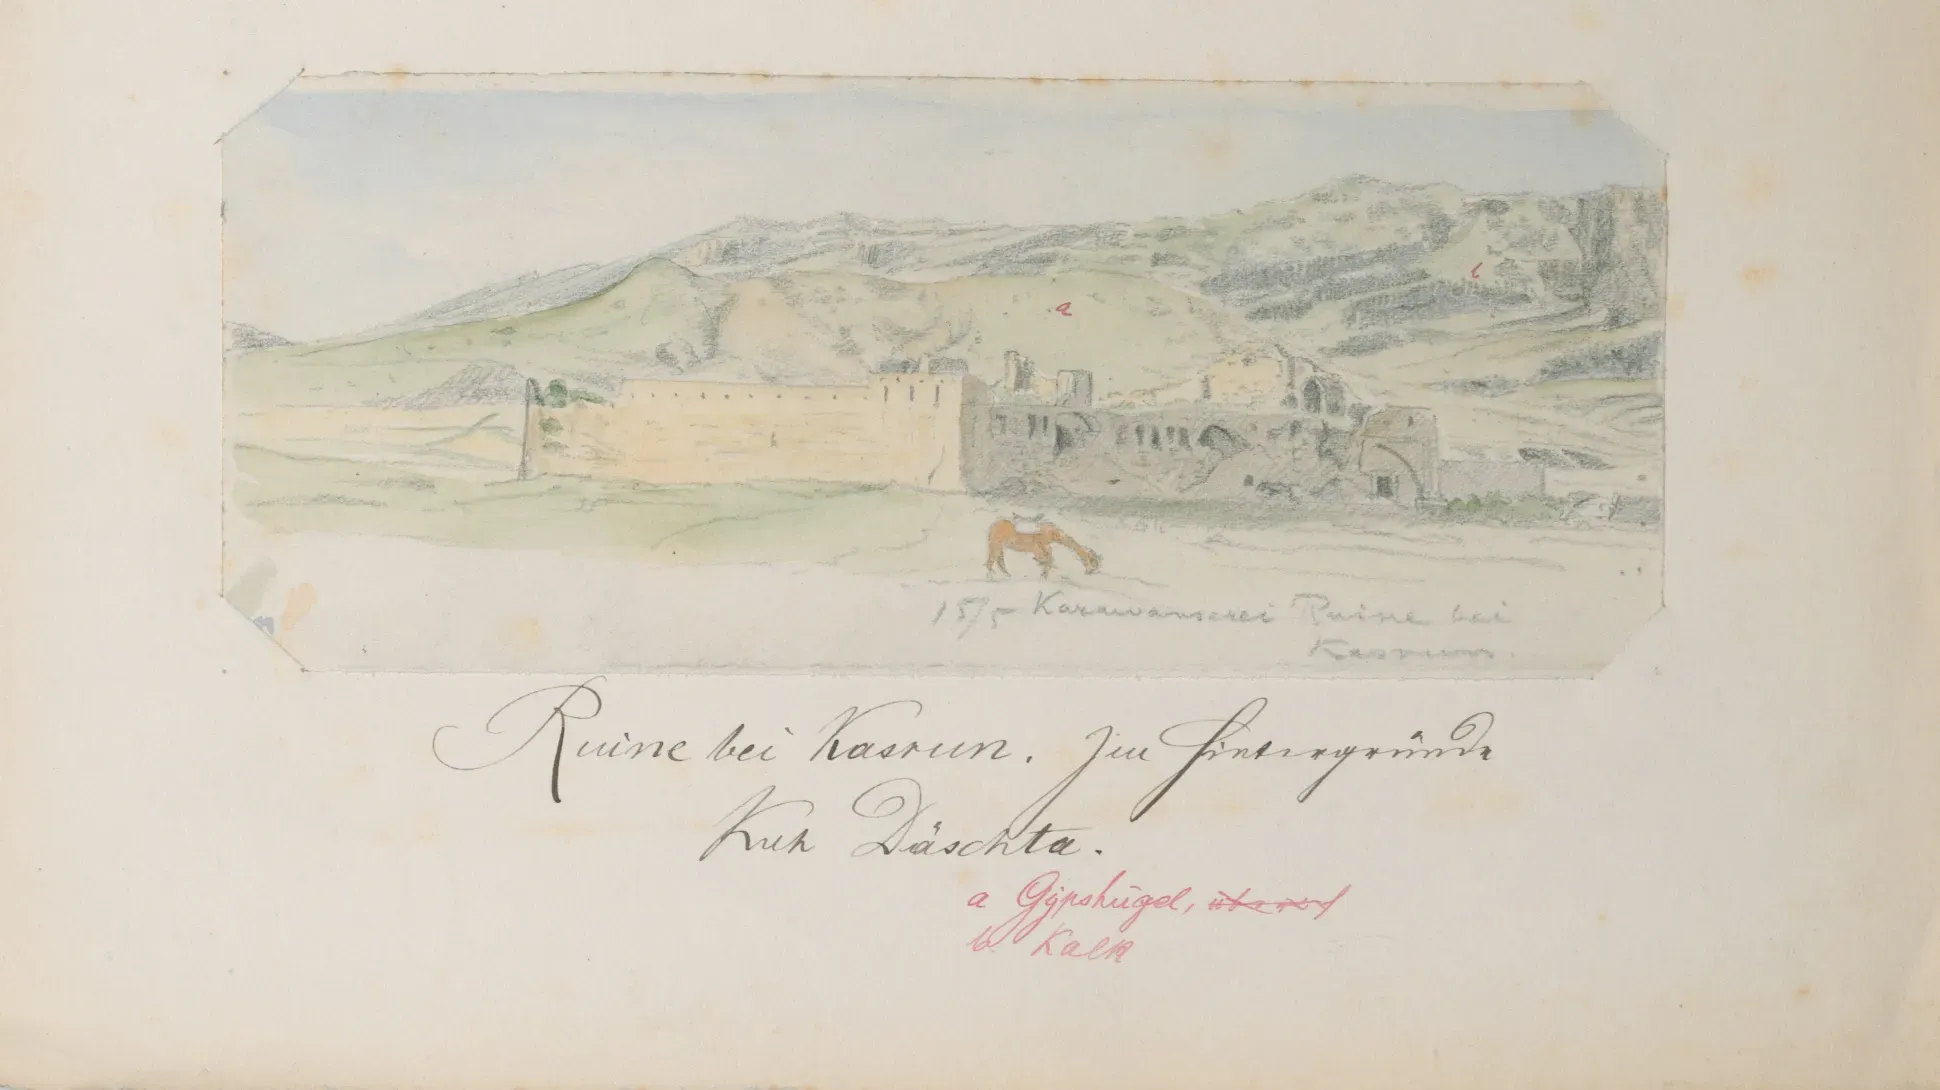 a
b
15/5 Karawanserei Ruine bei
Kasrun.
Ruine bei Kasrun. Im Hintergrunde
Kuh Däschta.
a Gypshügel,
b Kalk